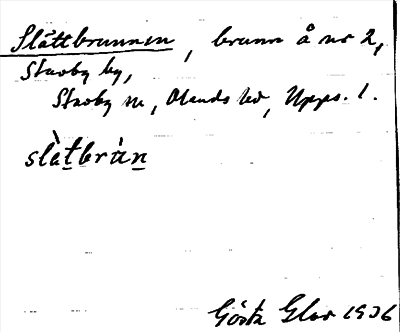 Slättbrunnen, brunn å nr 2,
Stavby by,
Stavby sn, Olands hd, Upps. l.
slàt̲brún̲
Gösta Glar 1936